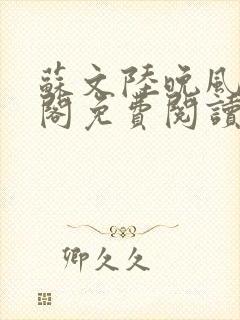 蘇文陸晚風
閣免費閱讀
卿久久